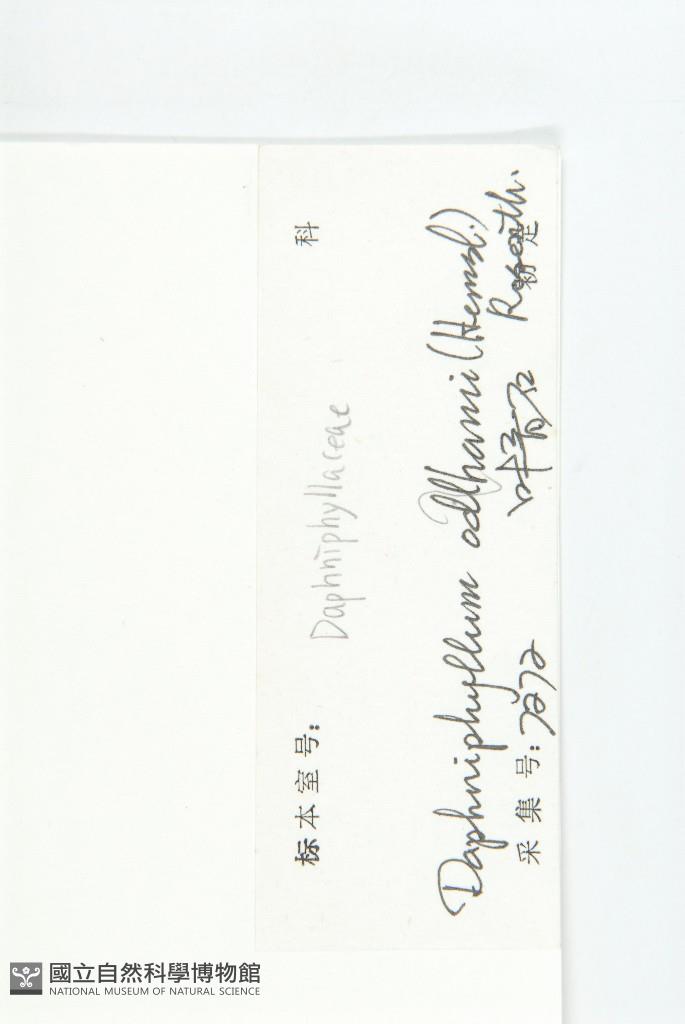 标本室号： Daphniphyllaceae 科
Daphniphyllum oldhami (Hemsl.) Rosenth.
采集号： 叶青石
國立自然科學博物館
NATIONAL MUSEUM OF NATURAL SCIENCE